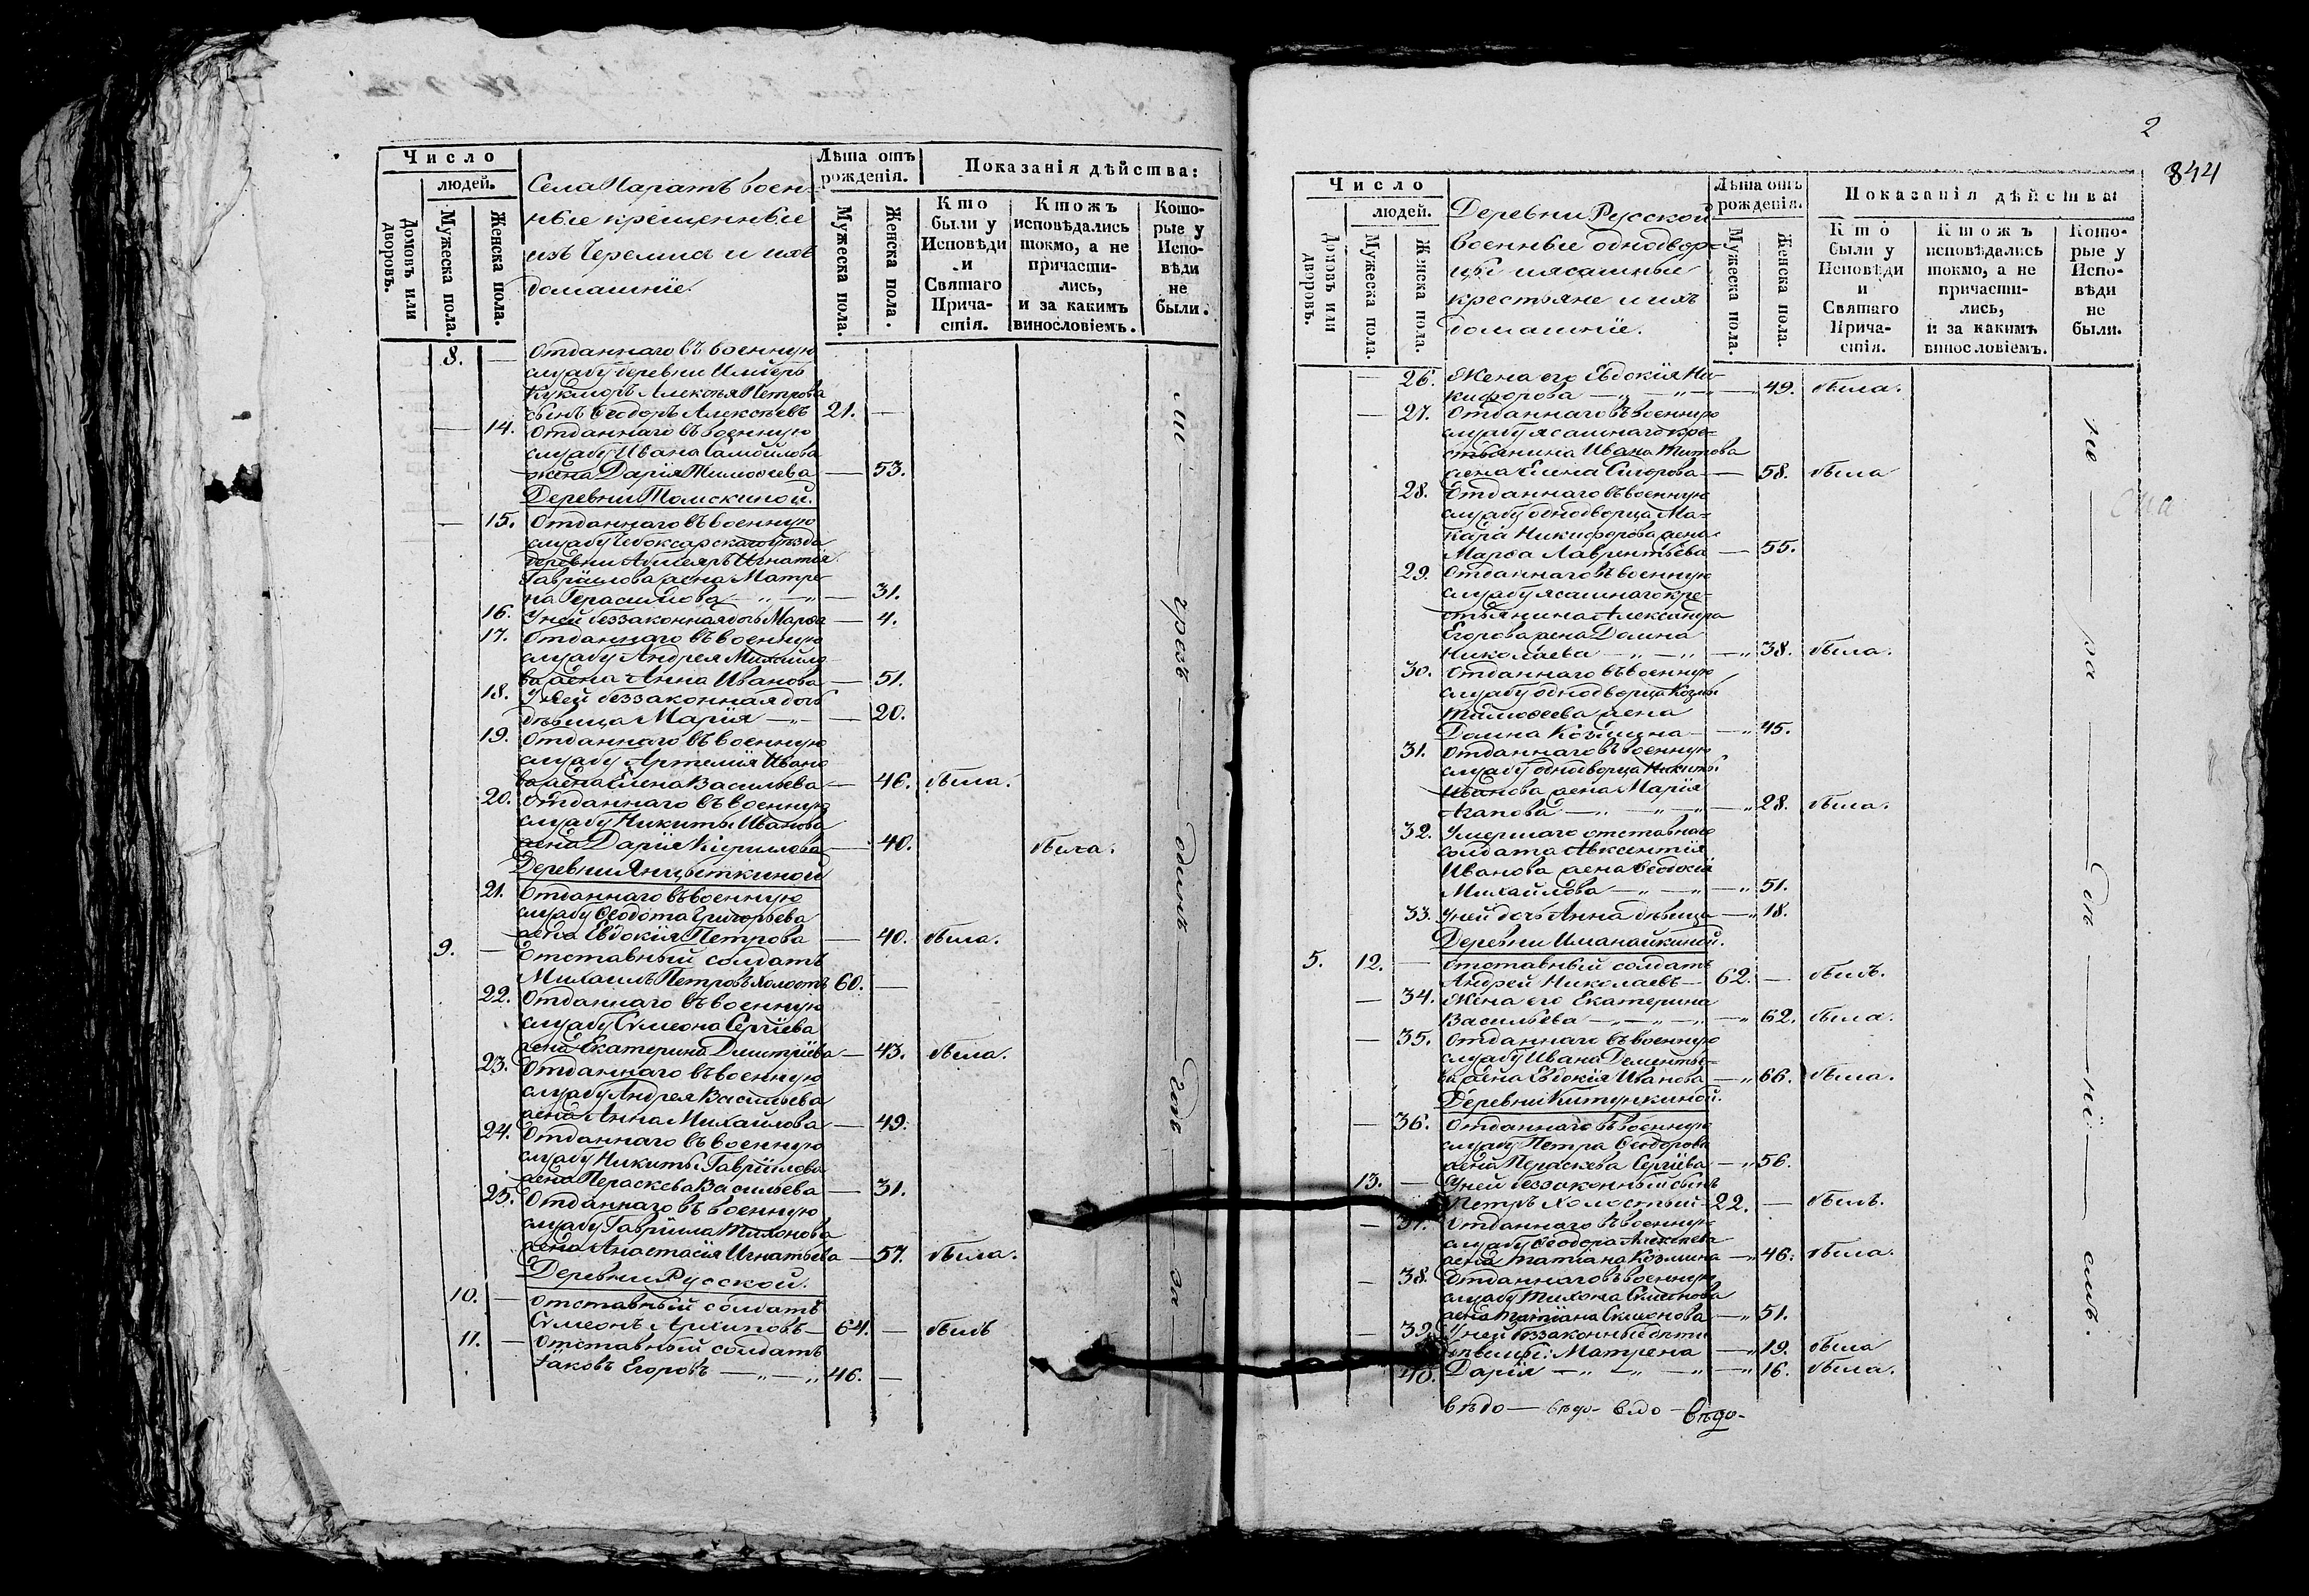 Число
людей.
Домовъ или дворовъ.
Мужеска пола.
Женска пола.
Села Паратъ воен-
ные крещенные
изъ Черемисъ и ихъ
домашніе.
Лѣта отъ рожденія.
Мужеска пола.
Женска пола.
Показанія дѣйства:
Кто были у Исповѣди и Святаго Причастія.
Ктожъ исповѣдались токмо, а не причастились, и за какимъ винословіемъ.
Которые у Исповѣди не были.
8. — Отданнаго въ военную
службу деревни
Алексѣя Петрова
сынъ Ѳеодоръ Алексѣевъ 21. —
— 14. Отданнаго въ военную
службу Ивана Самойлова
жена Дарія Тимоѳеева — 53.
Деревни Томскиной.
— 15. Отданнаго въ военную
службу Чебоксарскаго уѣзда
деревни Игнатія
Гавріилова жена Матре-
на Герасимова — „ — „ — 31.
16. У ней беззаконная дочь Марѳа — 4.
17. Отданнаго въ военную
службу Андрея Михайло-
ва жена Анна Иванова — 51.
18. У ней беззаконная дочь
дѣвица Марія — „ — 20.
19. Отданнаго въ военную
службу Артемія Ивано-
ва жена Елена Васильева — 46. была.
20. Отданнаго въ военную
службу Никиты Иванова
жена Дарія Кирилова — 40. была.
Деревни Янцыткиной
21. Отданнаго въ военную
службу Ѳеодота Григорьева
жена Евдокія Петрова — 40. была.
9. — Отставный солдатъ
Михаилъ Петровъ холостъ 60. —
22. Отданнаго въ военную
службу Симеона Сергіева
жена Екатерина Димитріева — 43. была.
23. Отданнаго въ военную
службу Андрея Васильева
жена Анна Михайлова — 49.
24. Отданнаго въ военную
службу Никиты Гавріилова
жена Пераскева Васильева — 31.
25. Отданнаго въ военную
службу Гавріила Тихонова
жена Анастасія Игнатьева — 57. была.
Деревни Русской.
10. — Отставный солдатъ
Симеонъ Архиповъ — 64. — былъ
11. — Отставный солдатъ
Іаковъ Егоровъ — „ — „ 46. —
грезъ — одинъ — годъ — за —
2
844
Число
людей.
Домовъ или дворовъ.
Мужеска пола.
Женска пола.
Деревни Русской
военные однодвор-
цы и ясашные
крестьяне и ихъ
домашніе.
Лѣта отъ рожденія.
Мужеска пола.
Женска пола.
Показанія дѣйства:
Кто были у Исповѣди и Святаго Причастія.
Ктожъ исповѣдались токмо, а не причастились, и за какимъ винословіемъ.
Которые у Исповѣди не были.
— 26. Жена его Евдокія Ни-
кифорова — „ — „ — 49. была.
— 27. Отданнаго въ военную
службу ясашнаго кре-
стьянина Ивана Титова
жена Елена Сидорова — 58. была
28. Отданнаго въ военную
службу однодворца Ма-
карія Никифорова жена
Марѳа Лаврентьева — 55.
29. Отданнаго въ военную
службу ясашнаго кре-
стьянина Александра
Егорова жена Домна
Николаева — „ — „ — „ 38. была.
30. Отданнаго въ военную
службу однодворца Козмы
Тимоѳеева жена
Домна Козмина — „ 45.
31. Отданнаго въ военную
службу однодворца Никиты
Иванова жена Марія
Агапова — „ — „ — „ 28. была.
32. Умершаго отставнаго
солдата Авксентія
Иванова жена Ѳеодосія
Михайлова — „ — „ — „ 51.
33. У ней дочь Анна дѣвица — „ 18.
Деревни Иманайкиной.
5. 12. — Отставный солдатъ
Андрей Николаевъ — 62. — былъ.
— 34. Жена его Екатерина
Васильева — „ — „ — „ 62. была.
— 35. Отданнаго въ военную
службу Ивана Дементье-
ва жена Евдокія Иванова — „ 66. была.
Деревни Китункиной.
— 36. Отданнаго въ военную
службу Петра Ѳеодорова
жена Пераскева Сергіева — „ 56.
13. — У ней беззаконный сынъ
Петръ холостый 22. — былъ.
— 37. Отданнаго въ военную
службу Ѳеодора Алексѣева
жена Татіана Козмина — „ 46. была.
— 38. Отданнаго въ военную
службу Тихона Симеонова
жена Татіана Симеонова — „ 51.
— 39. У ней беззаконные дѣти
дѣвицы: Матрена — „ 19. была
40. Дарія — „ — „ — „ 16. была.
не — ра — дѣ — ні — емъ.
вѣдо — вѣдо — вѣдо — вѣдо-